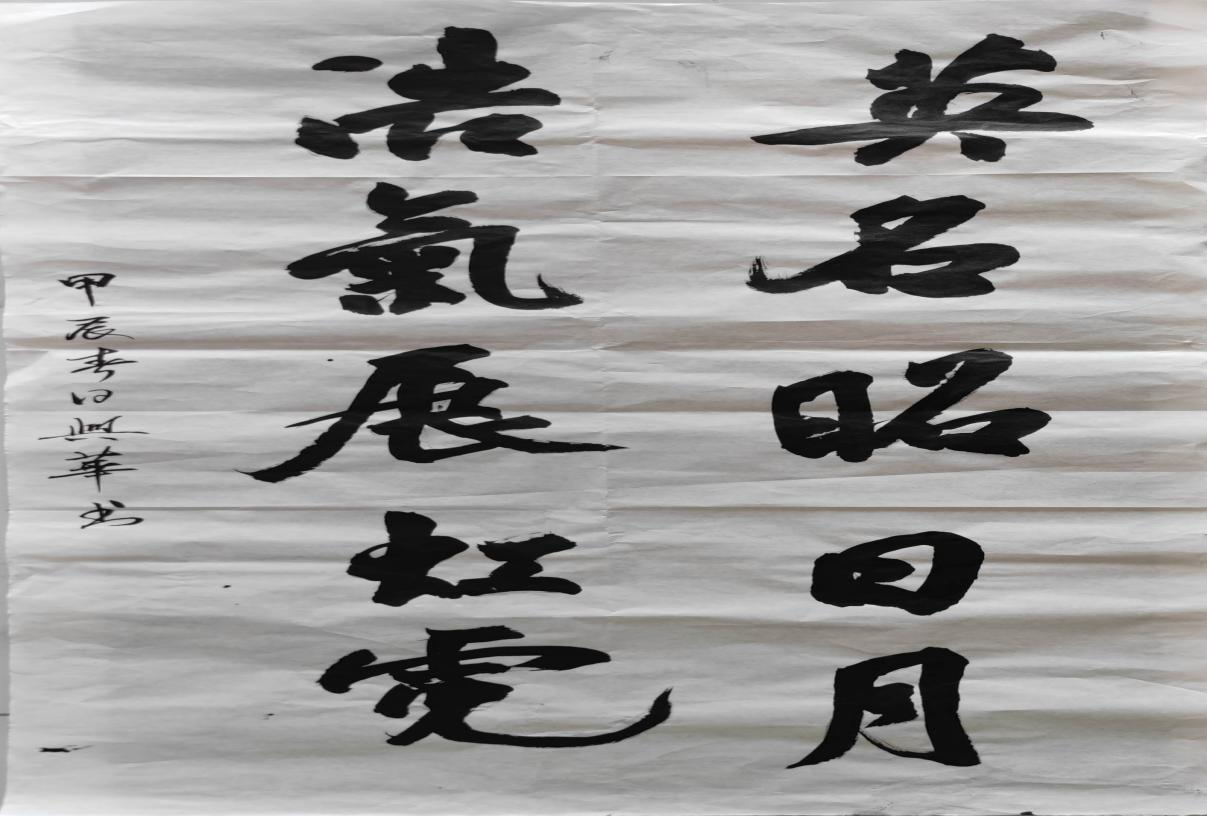 英名昭日月
浩氣展虹霓
甲辰春日興華书